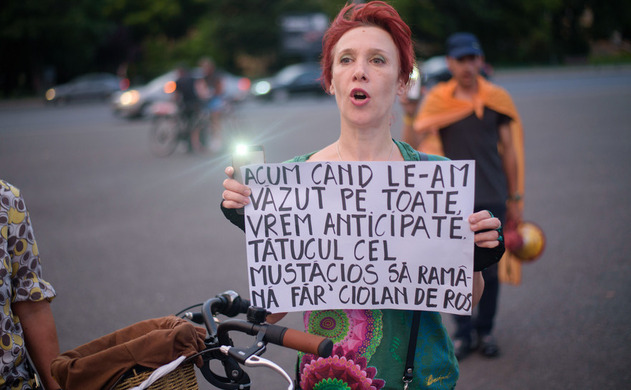 ACUM CÂND LE-AM
VĂZUT PE TOATE,
VREM ANTICIPATE,
TĂTUCUL CEL
MUSTĂCIOS SĂ RAMÂ-
NĂ FĂR' CIOLAN DE ROS